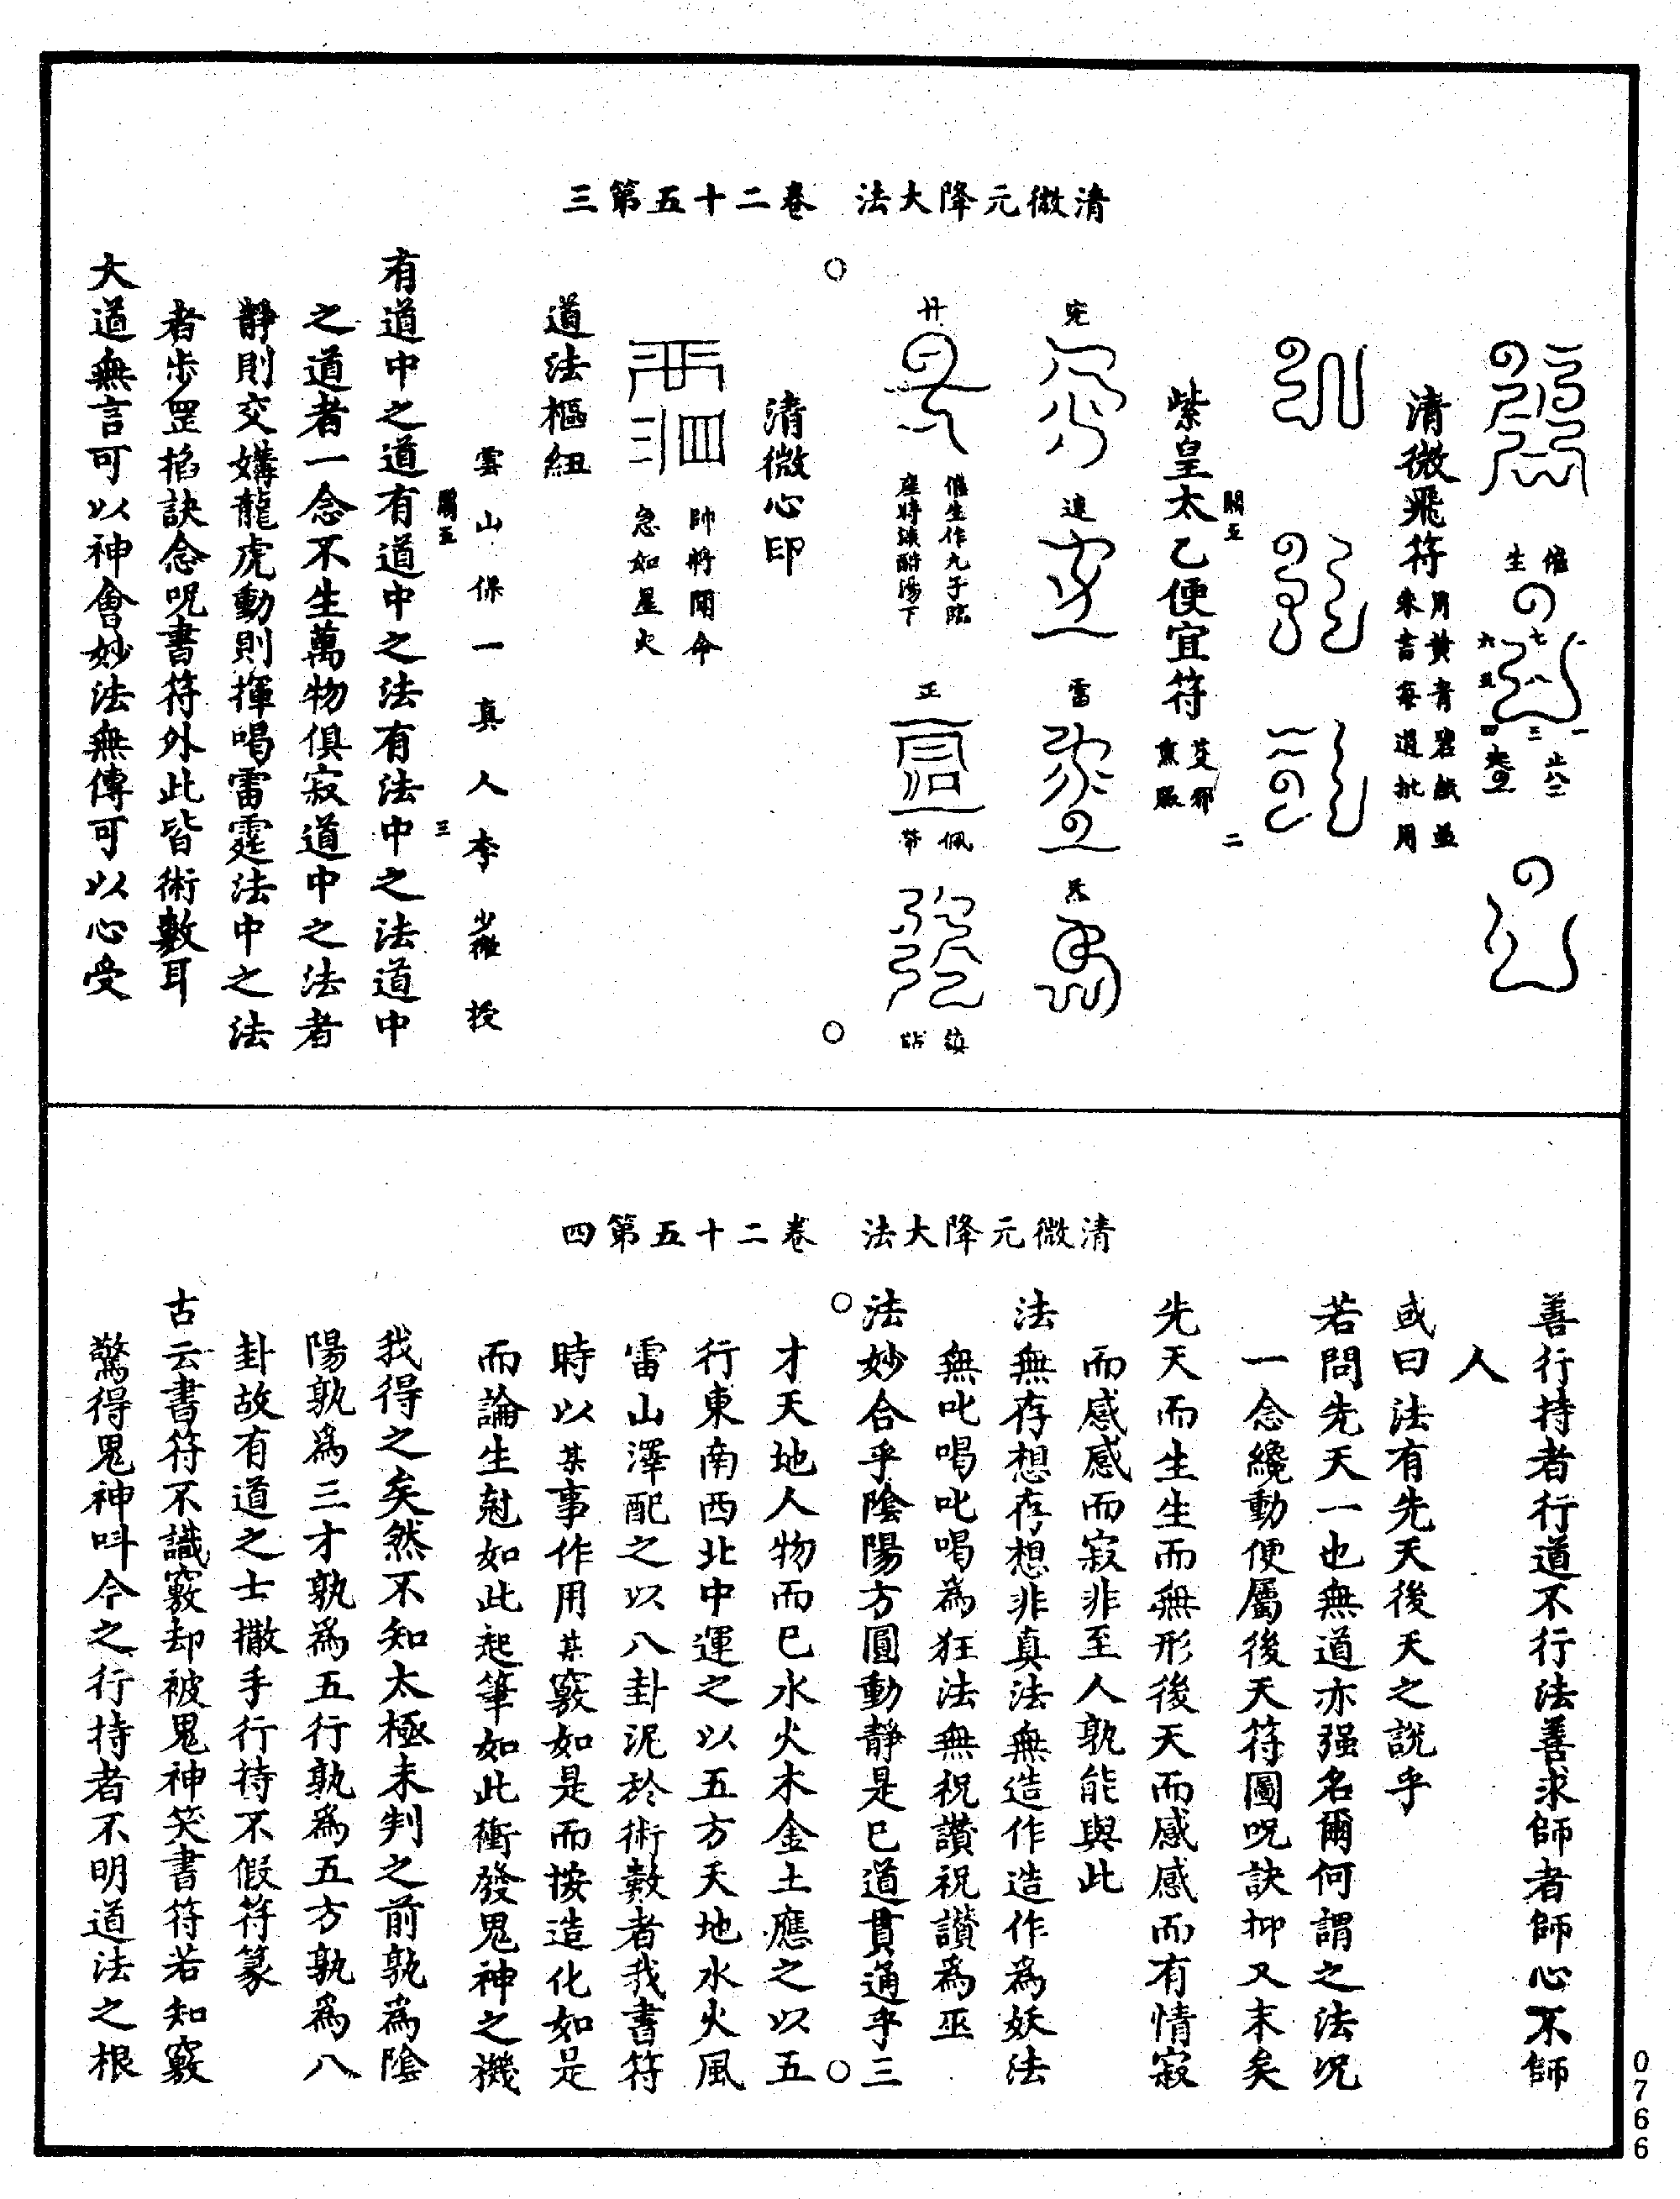 清微元降大法　卷二十五第三
催
生
清微飛符
用黃青碧紙並
朱書每道批用
紫皇太乙便宜符
關五
二
催生作九子臨
產時淡醋湯下
正
佩
帶
鎮
貼
清微心印
帥將聞命
急如星火
道法樞紐
雲山保一真人李少微授
關五
三
有道中之道有道中之法有法中之法道中
之道者一念不生萬物俱寂道中之法者
靜則交媾龍虎動則揮喝雷霆法中之法
者步罡掐訣念呪書符外此皆術數耳
大道無言可以神會妙法無傳可以心受
清微元降大法　卷二十五第四
善行持者行道不行法善求師者師心不師
人
或曰法有先天後天之說乎
若問先天一也無道亦强名爾何謂之法呪
一念纔動便屬後天符圖呪訣抑又末矣
先天而生生而無形後天而感感而有情寂
而感感而寂非至人孰能與此
法無存想存想非真法無造作造作為妖法
無叱喝叱喝為狂法無祝讚祝讚為巫
法妙合乎陰陽方圓動靜是已道貫通乎三
才天地人物而已水火木金土應之以五
行東南西北中運之以五方天地水火風
雷山澤配之以八卦泥於術數者我書符
時以某事作用某竅如是而按造化如是
而論生尅如此起筆如此衝發鬼神之機
我得之矣然不知太極未判之前孰為陰
陽孰為三才孰為五行孰為五方孰為八
卦故有道之士撒手行持不假符篆
古云書符不識竅却被鬼神笑書符若知竅
驚得鬼神呌今之行持者不明道法之根
0766